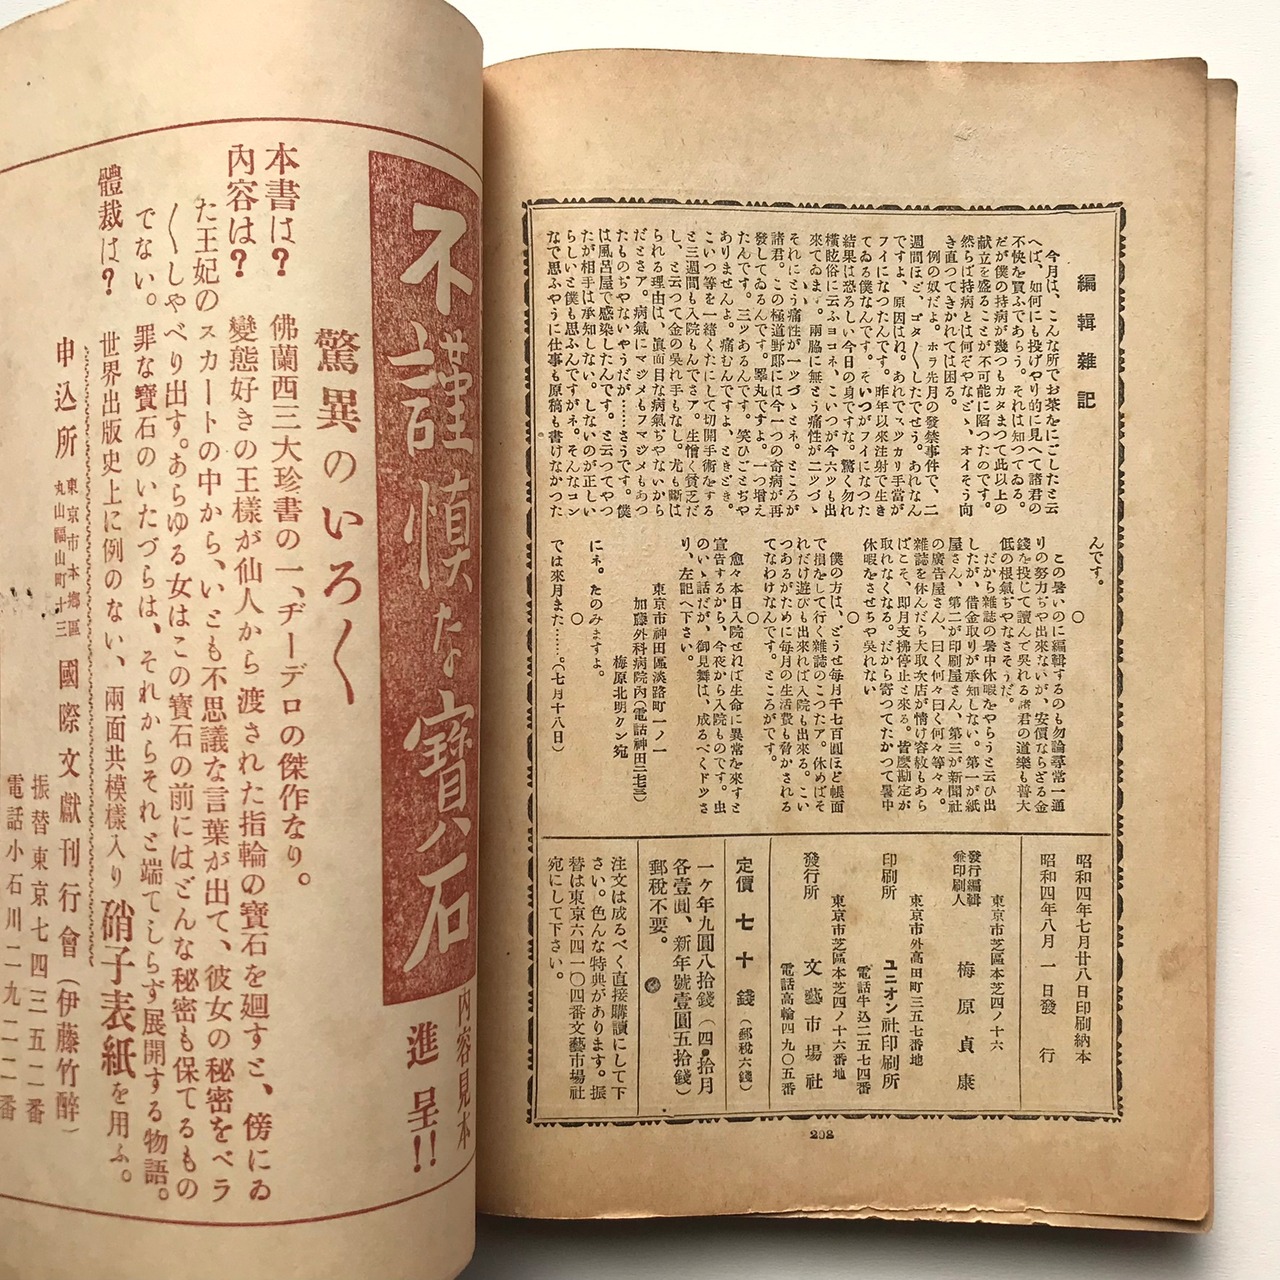 編輯雜記
今月は、こんな所でお茶をにごしたと云
へば、如何にも投げやり的に見へて諸君の
不快を買ふであらう。それは知つてゐる。
だが僕の持病が幾つもカタまつて此以上の
献立を盛ることが不可能に陥つたのです。
然らば持病とは何ぞやなどゝ、オイそう向
き直つてきかれては困る。
例の奴だよ。ホラ先月の發禁事件で、二
週間ほど、ゴタ〱したでせう。あれなん
ですよ、原因はね。あれでスッカリ手當が
フイになつたんです。昨年以來注射で生き
てゐる僕なんです。そいつがフイになつた
結果は恐ろしい今日の身ですな。驚く勿れ
横眩俗に云ふヨコネ、こいつが今六ツも出
來てゐます。兩脇に無とう痛性が二ツづゝ
それにとう痛性が一ツづゝとネ。ところが
諸君。この極道野郎には今一つの奇病が再
發してゐるんです。睾丸ですよ。一つ增え
たんです。三ツあるんです。笑ひごとぢや
ありませんよ。痛むんですよ、ときどき。
こいつ等を一緒くたにして切開手術をする
と三週間も入院もんでさア。生憎く貧乏だ
し、と云つて金の呉れ手もなし。尤も斷は
られる理由は、眞面目な病氣ぢやないから
だとさア。病氣にマジメもフマジメもあつ
たものぢやないやうだが……さうです。僕
は風呂屋で感染したんです。と云つてやつ
たが相手は承知しない。しないのが正しい
らしいと僕も思ふんですがネ。そんなコン
なで思ふやうに仕事も原稿も書けなかつた
んです。
○
この暑いのに編輯するのも勿論尋常一通
りの努力ぢや出來ないが、安價ならざる金
錢を投じて讀んで呉れる諸君の道樂も普大
低の根氣ぢやなさそうだ。
だから雜誌の暑中休暇をやらうと云ひ出
したが、借金取りが承知しない。第一が紙
屋さん、第二が印刷屋さん、第三が新聞社
の廣告屋さん、曰く何々曰く何々等々。
雜誌を休んだら大取次店が情け容赦もあら
ばこそ、即月支拂停止と來る。皆麼勘定が
取れなくなる。だから寄つてたかつて暑中
休暇をさせちや呉れない
○
僕の方は、どうせ毎月千七百圓ほど帳面
で損をして行く雜誌のこつたア。休めばそ
れだけ遊びも出來れば入院も出來る。こい
つあるがために毎月の生活費も脅かされる
てなわけなんです。ところがです。
○
愈々本日入院せねば生命に異常を來すと
宣告するから、今夜から入院ものです。虫
のいゝ話だが、御見舞は、成るべくドッさ
り、左記へ下さい。
東京市神田區淡路町一ノ一
加藤外科病院内(電話神田二七三)
梅原北明クン宛
にネ。たのみますよ。
○
では來月また……。(七月十八日)
昭和四年七月廿八日印刷納本
昭和四年八月一日發行
東京市芝區本芝四ノ十六
發行編輯
兼印刷人 梅原貞康
東京市外高田町三五七番地
印刷所 ユニオン社印刷所
電話牛込二五七四番
東京市芝區本芝四ノ十六番地
發行所 文藝市場社
電話高輪四九〇五番
定價七十錢(郵稅六錢)
一ケ年九圓八拾錢(四・拾月
各壹圓、新年號壹圓五拾錢)
郵稅不要。
注文は成るべく直接購讀にして下
さい。色んな特典があります。振
替は東京六四一〇四番文藝市場社
宛にして下さい。
202
不謹愼な寶石
內容見本
進呈!!
驚異のいろ〱
本書は? 佛蘭西三大珍書の一、ヂーデロの傑作なり。
內容は? 變態好きの王樣が仙人から渡された指輪の寶石を廻すと、傍にゐ
た王妃のスカートの中から、いとも不思議な言葉が出て、彼女の秘密をベラ
〱しやべり出す。あらゆる女はこの寶石の前にはどんな秘密も保てるもの
でない。罪な寶石のいたづらは、それからそれと端てしらず展開する物語。
體裁は? 世界出版史上に例のない、兩面共模樣入り硝子表紙を用ふ。
申込所 東京市本鄉區
丸山福山町十三 國際文獻刊行會(伊藤竹醉)
振替東京七四三五二番
電話小石川二九二二番